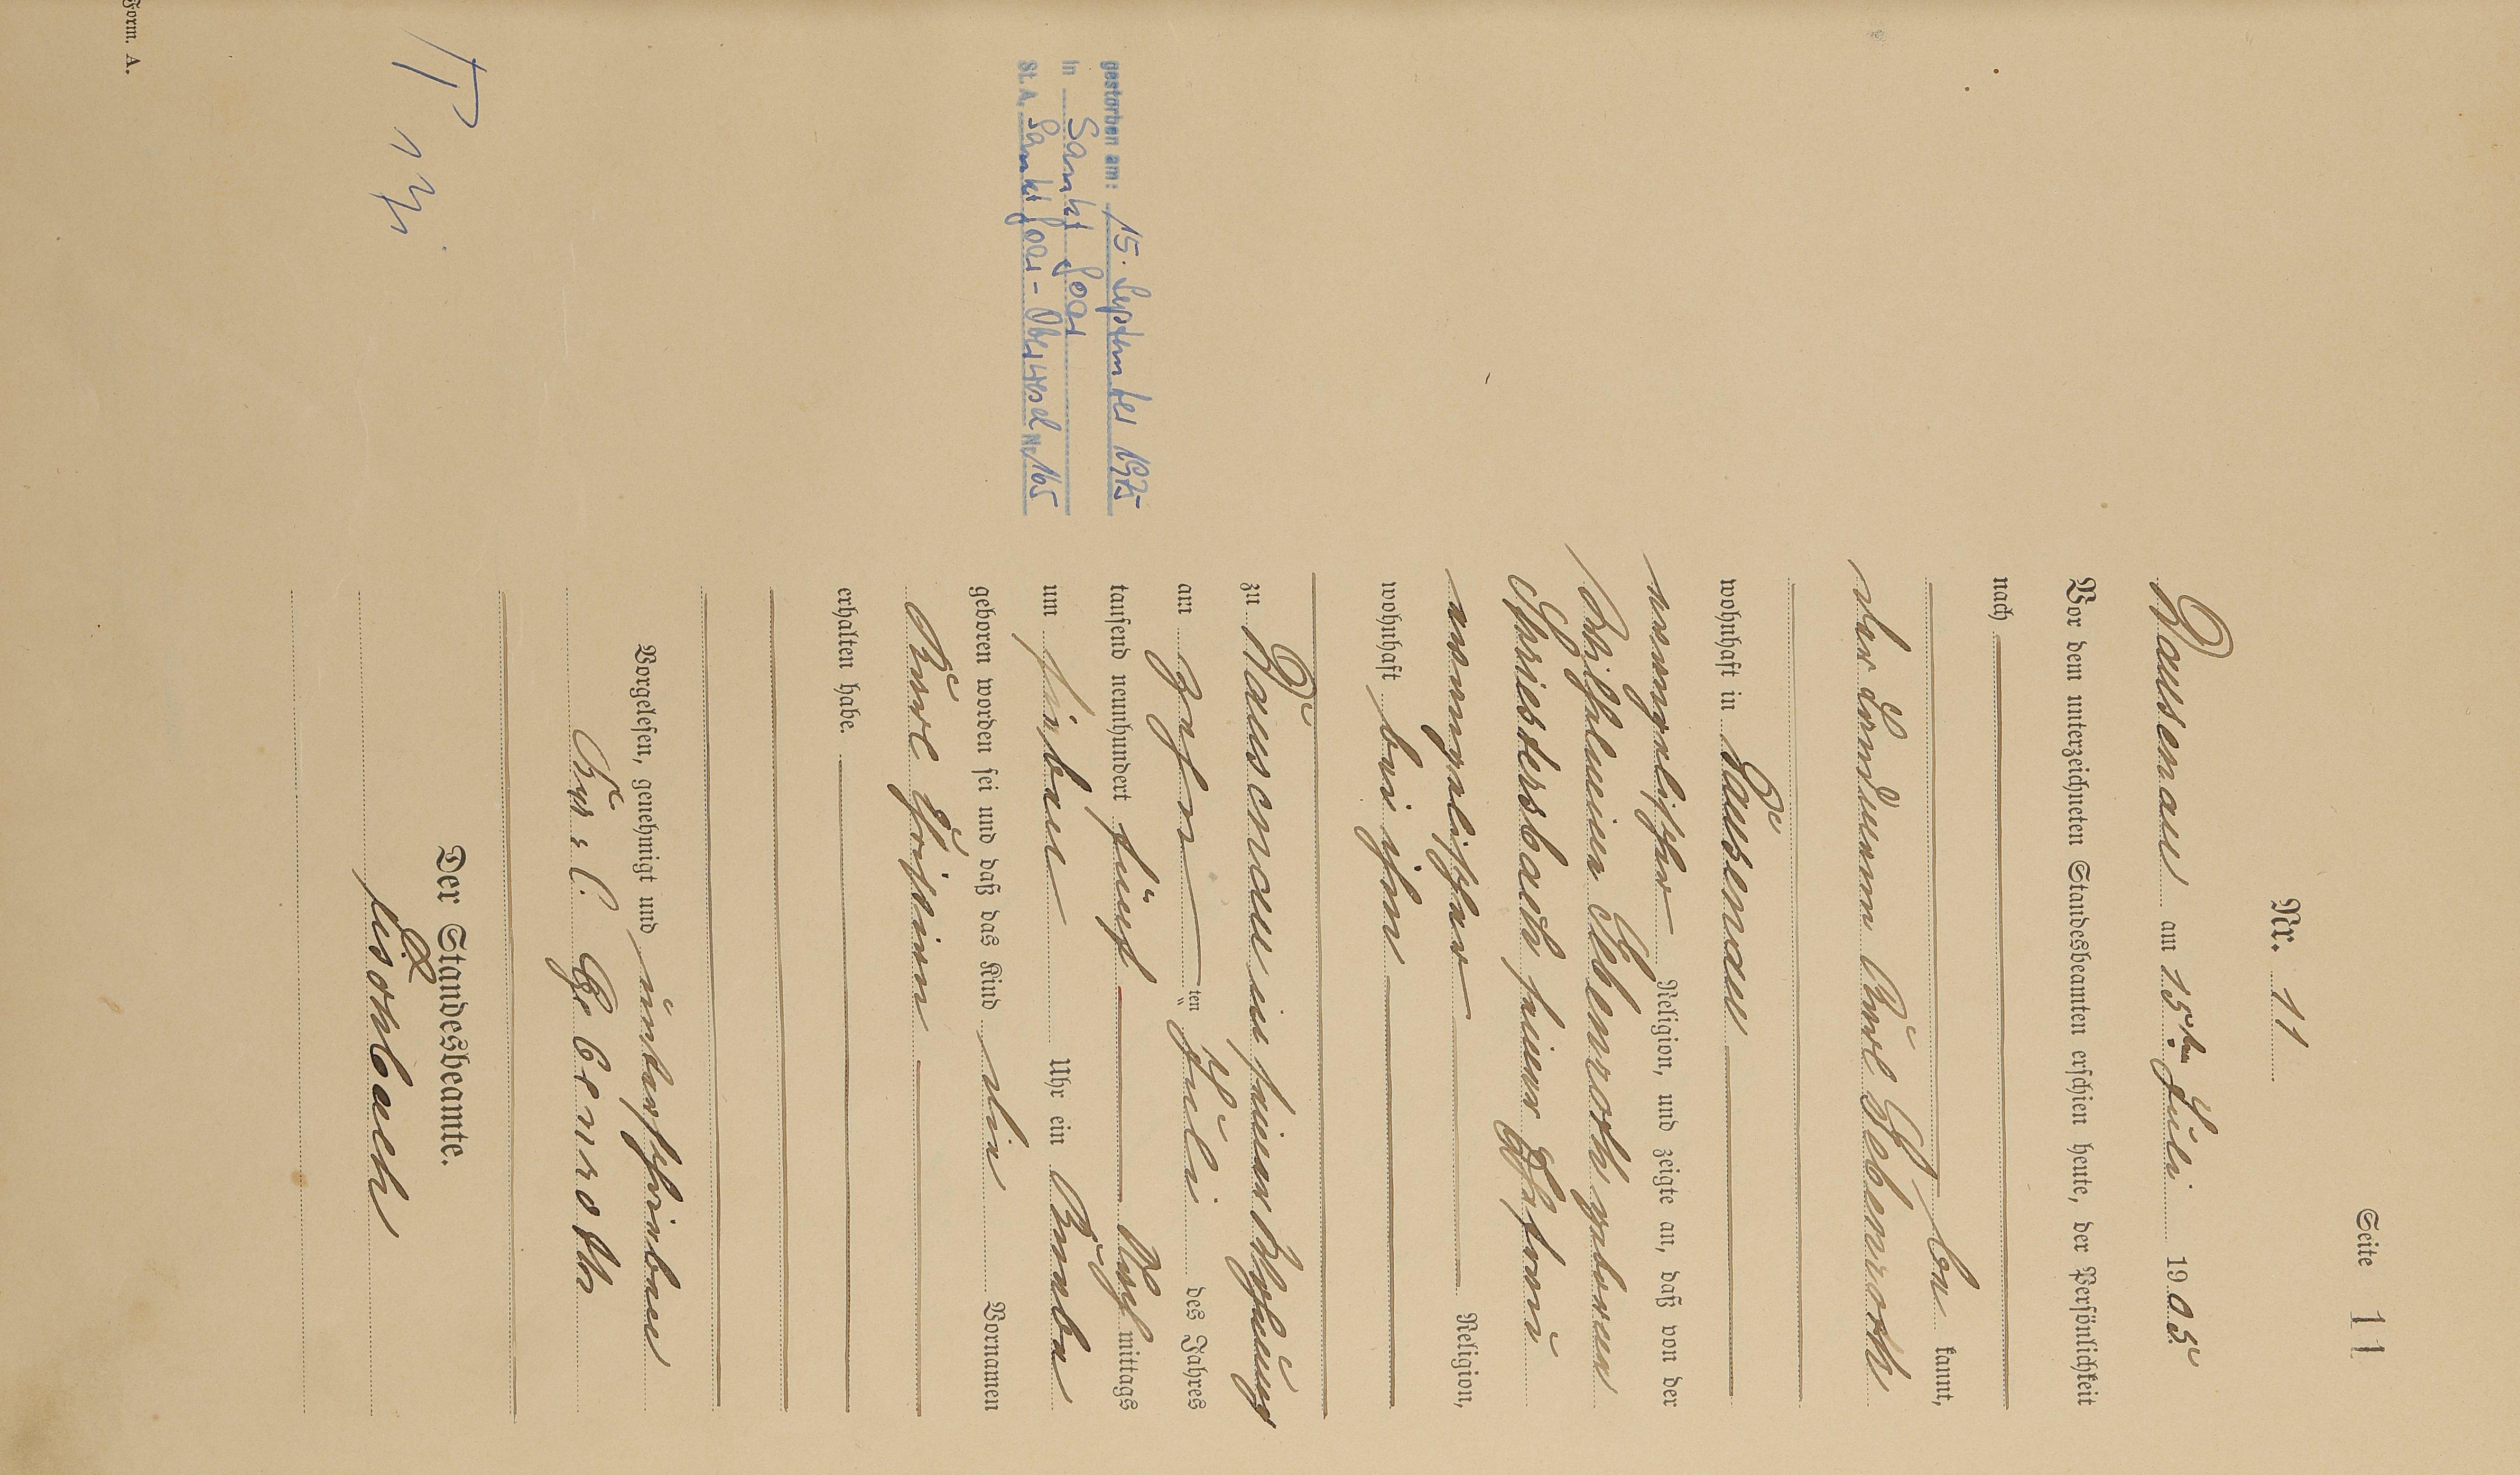 Seite 11
Nr. 11
Dausenau am 15ten Juli 1905
Vor dem unterzeichneten Standesbeamten erschien heute, der Persönlichkeit
nach
be kannt,
der Landmann Karl Gebenroth
wohnhaft in Dausenau
evangelischer Religion, und zeigte an, daß von der
Wilhelmine Gebenroth geborenen
Spriestersbach seiner Ehefrau
evangelischer Religion,
wohnhaft bei ihm
zu Dausenau in seiner Wohnung
am zehn ten Juli des Jahres
tausend neunhundert fünf Nach mittags
um sieben Uhr ein Knabe
geboren worden sei und daß das Kind den Vornamen
Karl
erhalten habe.
Vorgelesen, genehmigt und unterschrieben
Karl Gebenroth
Der Standesbeamte.
gestorben am: 15. September 1975
in Sankt Goar
St. A. Sankt Goar-Oberwesel Nr. 165
Form. A.